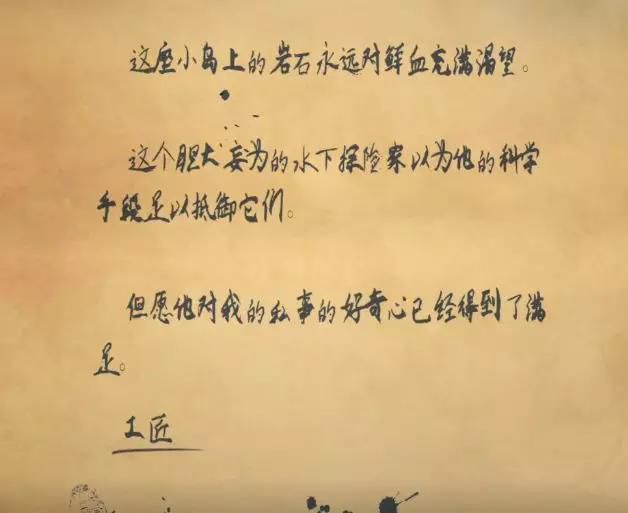 这座小岛上的岩石永远对鲜血充满渴望。
这个胆大妄为的水下探险家以为他的科学
手段足以抵御它们。
但愿他对我的私事的好奇心已经得到了满
足。
工匠